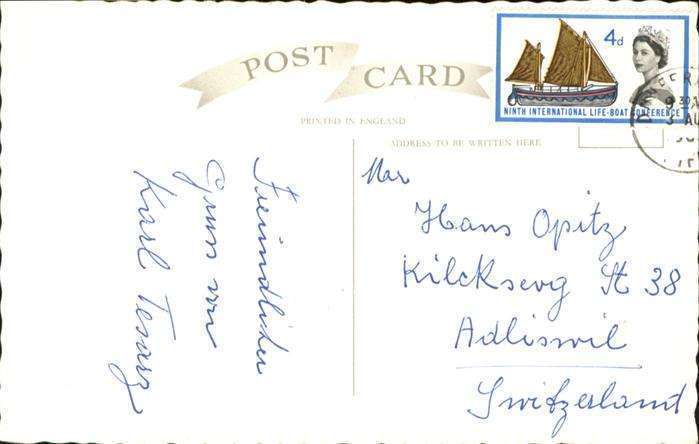 POST CARD
4d
NINTH INTERNATIONAL LIFE-BOAT CONFERENCE
PRINTED IN ENGLAND
ADDRESS TO BE WRITTEN HERE
Freundlicher
Gruss von
Karl Tesarz
Hans Opitz
Kilcksevg St 38
Adliswil
Switzerland